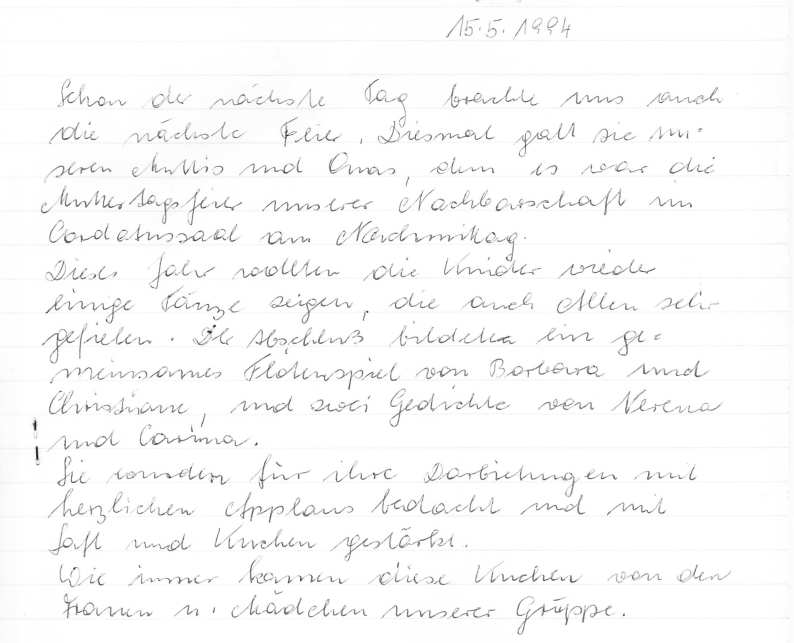 15.5.1994
Schon der nächste Tag brachte uns auch
die nächste Feier. Diesmal galt sie un-
seren Muttis und Omas, denn es war die
Muttertagsfeier unserer Nachbarschaft im
Cordatussaal am Nachmittag.
Dieses Jahr wollten die Kinder wieder
einige Tänze zeigen, die auch Allen sehr
gefielen. Die Abschluß bildeten ein ge-
meinsames Flötenspiel von Barbara und
Christiane, und zwei Gedichte von Verena
und Carina.
Sie wurden für ihre Darbietungen mit
herzlichen Applaus bedacht und mit
Saft und Kuchen gestärkt.
Wie immer kamen diese Kuchen von den
Frauen u. Mädchen unserer Gruppe.